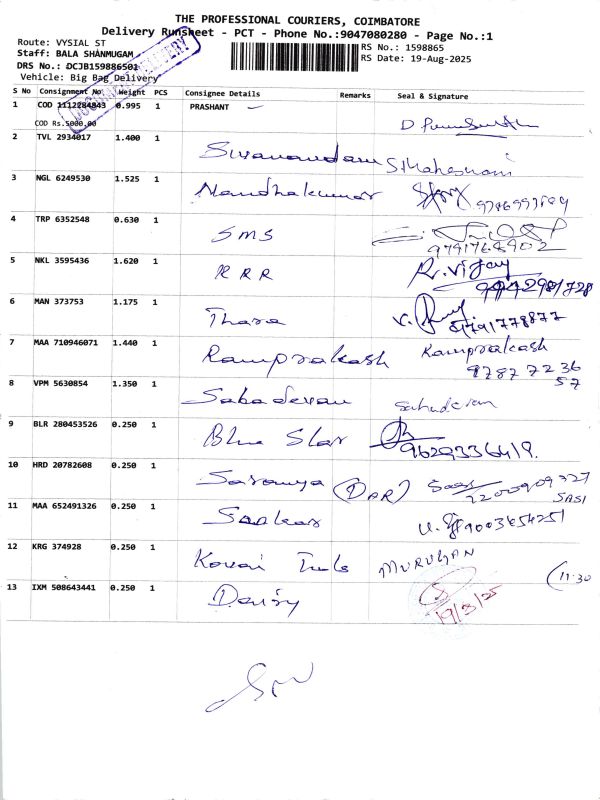 THE PROFESSIONAL COURIERS, COIMBATORE
Delivery Runsheet - PCT - Phone No.:9047080280 - Page No.:1
Route: VYSIAL ST
Staff: BALA SHANMUGAM
DRS No.: DCJB159886501
Vehicle: Big Bag Delivery
RS No.: 1598865
RS Date: 19-Aug-2025
DELIVERY
S No Consignment No Weight PCS Consignee Details Remarks Seal & Signature
1 COD 1112284843 0.995 1 PRASHANT
COD Rs.5000.00
2 TVL 2934017 1.400 1 Sivanandam S.Maheswari
3 NGL 6249530 1.525 1 Nandhakumar
4 TRP 6352548 0.630 1 SMS
9791768902
5 NKL 3595436 1.620 1 KRR R.Vijay
6 MAN 373753 1.175 1 Thara
9791778877
7 MAA 710946071 1.440 1 Ramprakash Ramprakash
97877236
57
8 VPM 5630854 1.350 1 Sahadevan Sahadevan
9 BLR 280453526 0.250 1 Blue Star
9629336419.
10 HRD 20782608 0.250 1 Saranya (DAR)
SASI
11 MAA 652491326 0.250 1 Sankar 9003654251
12 KRG 374928 0.250 1 Kovai MURUGAN
(11.30
13 IXM 508643441 0.250 1 Daisy
19/8/25